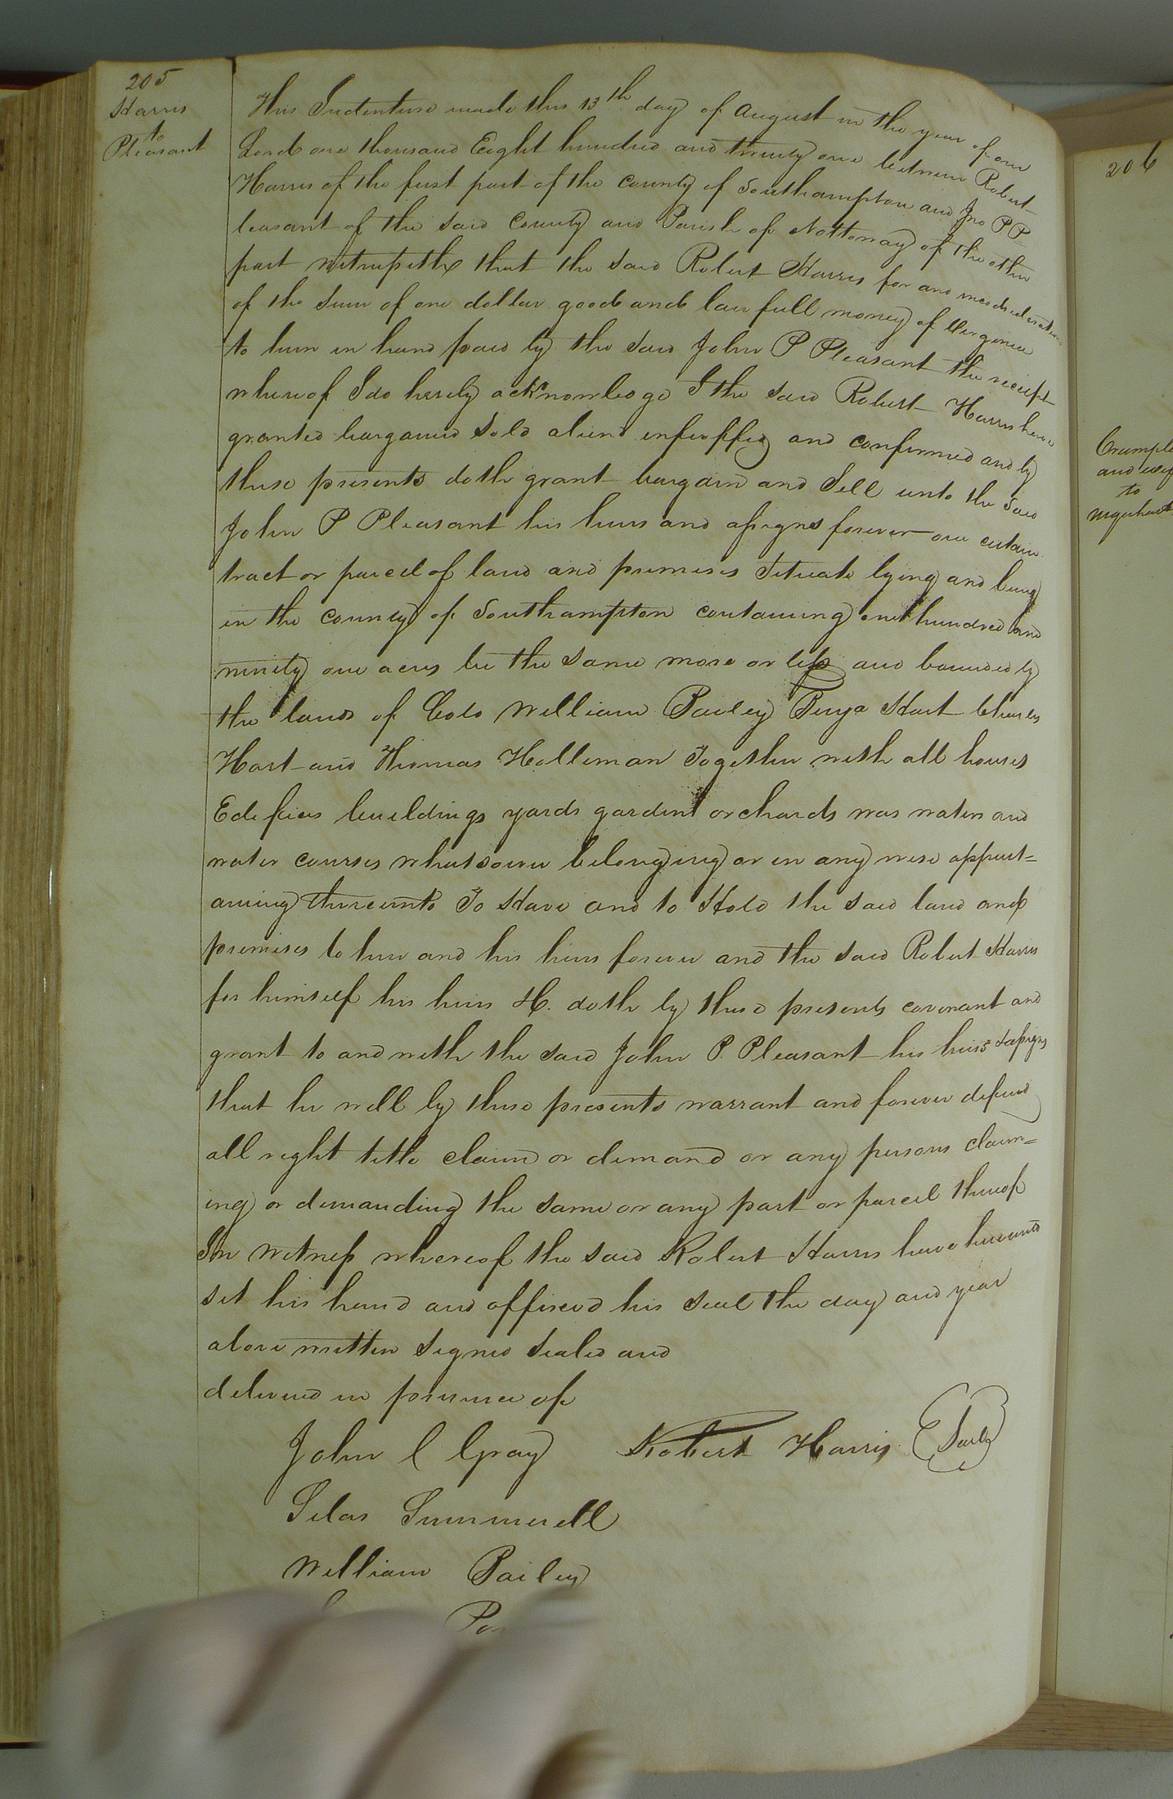 205
Harris
to
Pleasant
This Indenture made this 13th day of August in the year of our
Lord one thousand Eight hundred and twenty one between Robert
Harris of the first part of the county of Southampton and Jno P P
leasant of the said County and Parish of Nottoway of the other
part witnesseth that the said Robert Harris for and in consideration
of the sum of one dollar good and lawfull money of Virginia
to him in hand paid by the said John P Pleasant the receipt
whereof I do hereby acknowledge I the said Robert Harris have
granted bargained Sold aliend enfeoffed and confirmed and by
these presents doth grant bargain and Sell unto the said
John P Pleasant his heirs and assigns forever one certain
tract or parcel of land and premises Situate lying and being
in the county of Southampton containing one hundred and
ninety one acres be the same more or less and bounded by
the lands of Colo William Bailey Benja Hart Charles
Hart and Thomas Holleman Together with all houses
Edefices buildings yards gardens orchards was waters and
water courses whatsoever belonging or in any wise appurt=
aining thereunto To Have and to Hold the said land and
premises to him and his heirs forever and the said Robert Harris
for himself his heirs &c. doth by these presents covenant and
grant to and with the said John P. Pleasant his heirs & assigns
that he will by these presents warrant and forever defend
all right title claim or demand or any persons claim=
ing or demanding the same or any part or parcel thereof
In witness whereof the said Robert Harris have hereunto
set his hand and affixed his seal the day and year
above written Signed Sealed and
delivered in presence of
John C Gray Robert Harris Seal
Silas Summerell
William Bailey
206
and wife
to